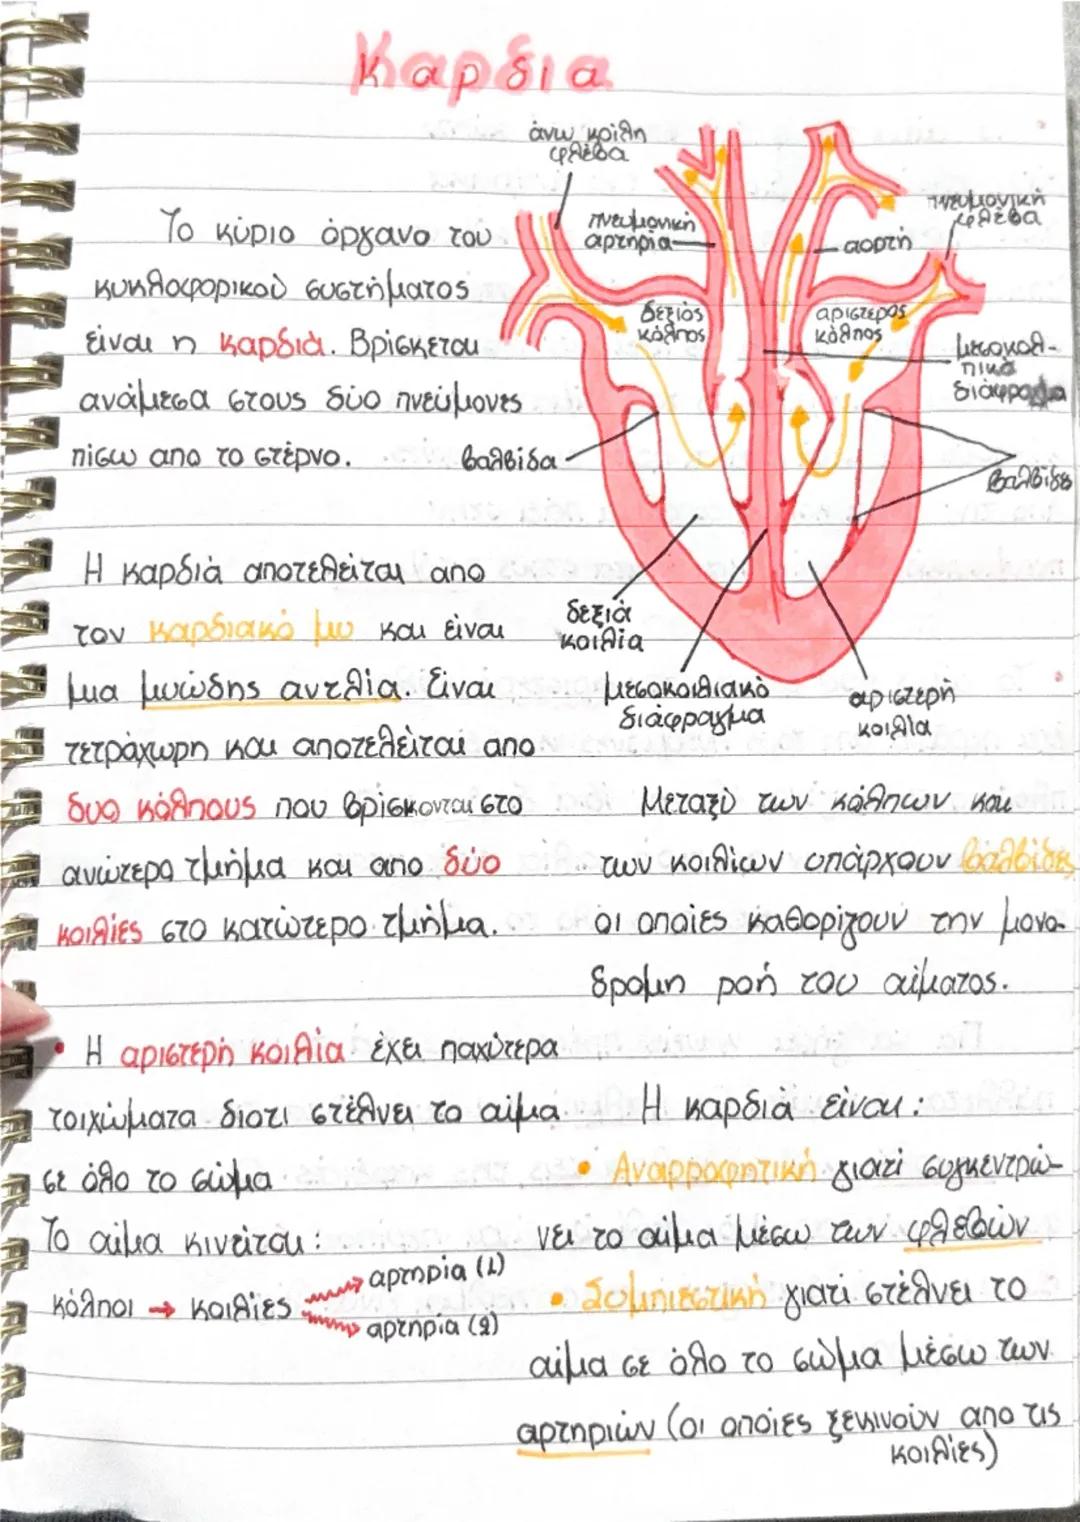 Καρδια
άνω κοίλη
φλέβα
πνευμονική
αρτηρία
αορτή
πνευμονική
φλέβα
δεξιός
κόλπος
αριστερός
κόλπος
μεσοκολ-
πικό
διάφραγμα
βαλβίδα
βαλβίδες
δεξιά
κοιλία
μεσοκοιλιακό
διάφραγμα
αριστερή
κοιλία
Το κύριο όργανο του
κυκλοφορικού συστήματος
είναι η καρδιά. Βρίσκεται
ανάμεσα στους δύο πνεύμονες
πίσω απο το στέρνο.
Η καρδιά αποτελείται απο
τον καρδιακό μυ και είναι
μια μυώδης αντλία. Είναι
τετράχωρη και αποτελείται απο
δυο κόλπους που βρίσκονται στο
ανώτερο τμήμα και απο δύο
κοιλίες στο κατώτερο τμήμα.
• Η αριστερή κοιλία έχει παχύτερα
τοιχώματα διοτι στέλνει το αίμα
σε όλο το σώμα
Το αίμα κινείται:
κόλποι → κοιλίες
αρτηρία (1)
αρτηρία (2)
Μεταξύ των κόλπων και
των κοιλίων υπάρχουν βαλβίδες
οι οποίες καθορίζουν την μονο-
δρομη ροή του αίματος.
Η καρδιά είναι:
• Αναρροφητική γιατί συγκεντρώ-
νει το αίμα μέσω των φλεβών
• Συμπιεστική γιατί στέλνει το
αίμα σε όλο το σώμα μέσω των
αρτηριών (οι οποίες ξεκινούν απο τις
κοιλίες)